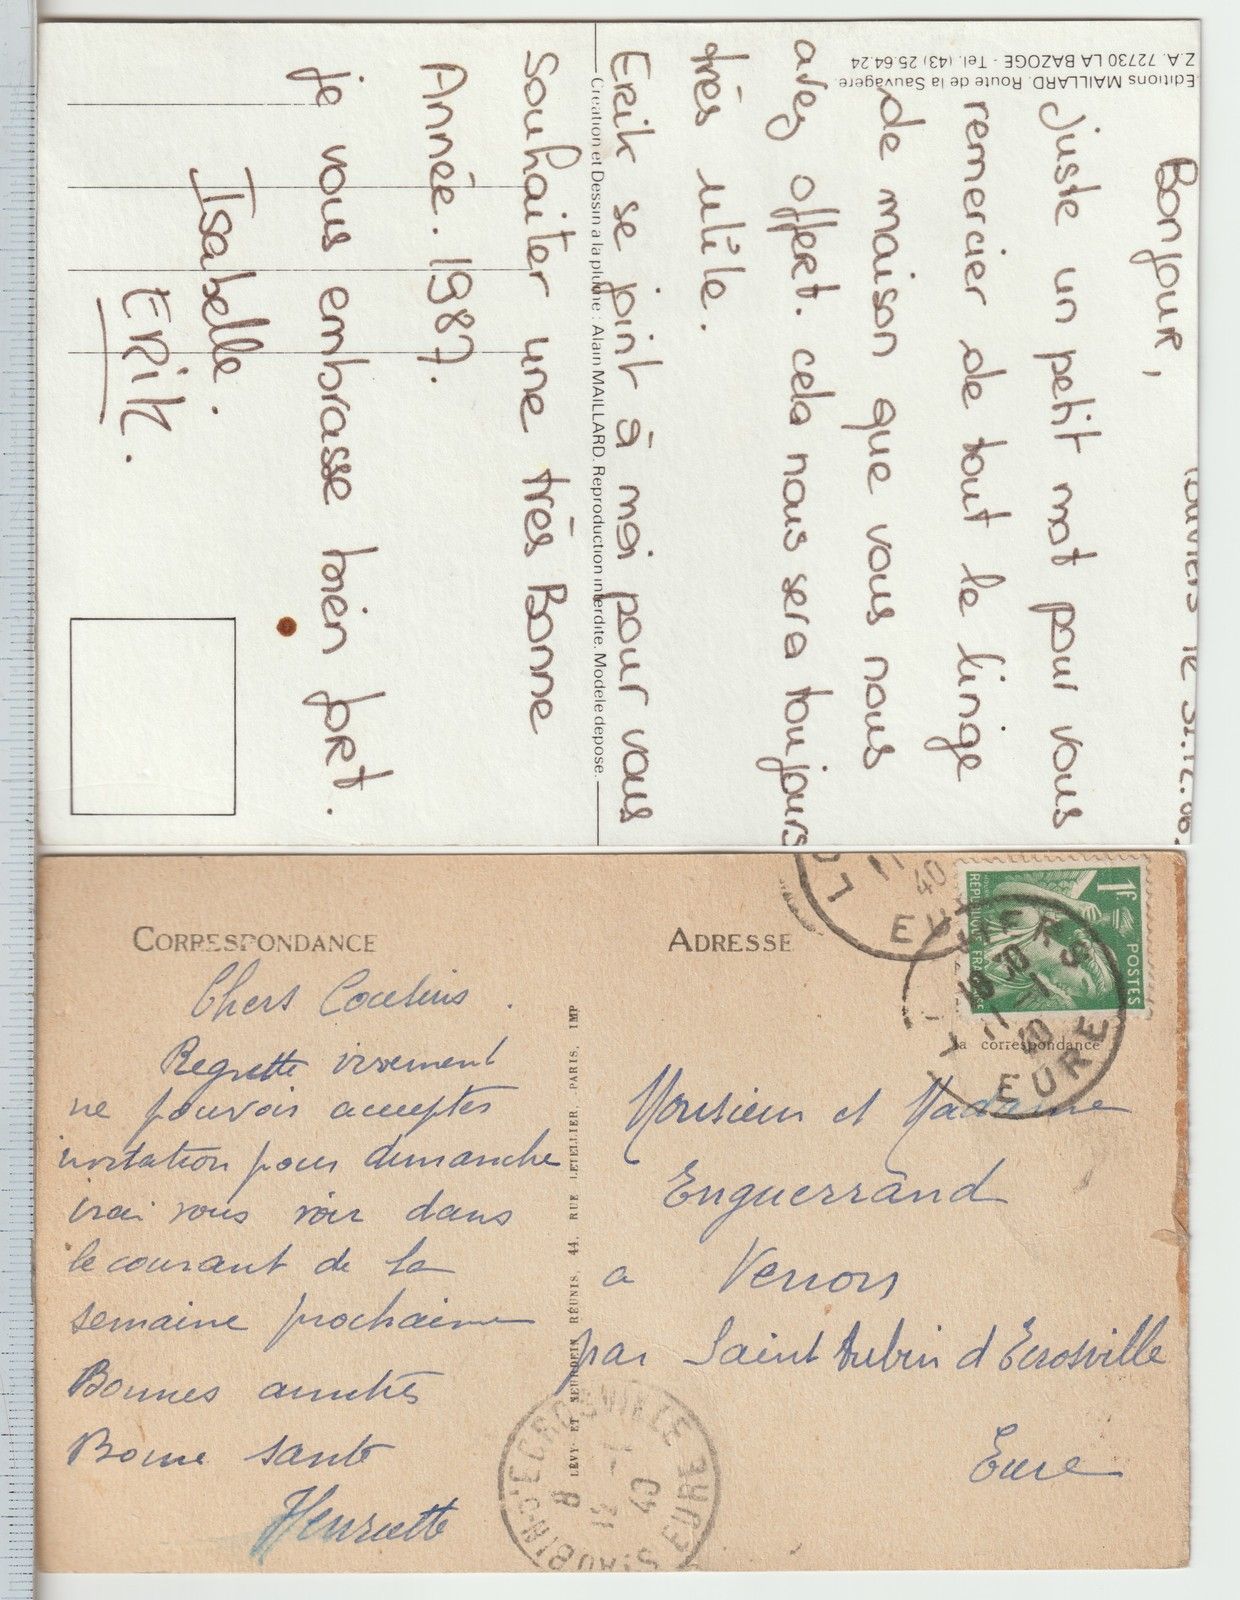 Editions MAILLARD. Route de la Sauvagère.
Z.A. 72730 LA BAZOGE - Tel. (43) 25.64.24
Louviers le 31.12.86.
Bonjour,
juste un petit mot pour vous
remercier de tout le linge
de maison que vous nous
avez offert. cela nous sera toujours
très utile.
Erik se joint à moi pour vous
Souhaiter une très Bonne
Année. 1987.
je vous embrasse bien fort.
Isabelle.
ERik.
Creation et Dessin a la plume : Alain MAILLARD. Reproduction interdite. Modele depose.
CORRESPONDANCE
Chers Cousins.
Regrette vivement
ne pouvoir accepter
invitation pour dimanche
irai vous voir dans
le courant de la
semaine prochaine
Bonnes amitiés
Bonne santé
Henriette
LEVY ET NEURDEIN RÉUNIS, 44, RUE LETELLIER, PARIS, IMP
ADRESSE
la correspondance
Monsieur et Madame
Enguerrand
a Venon
par Saint Aubin d'Ecrosville
Eure
1F
POSTES
RÉPUBLIQUE FRANÇAISE
40
EU
18 30
11 1
40
EURE
ST AUBIN-D'ECROSVILLE
8
12 -1
40
EURE